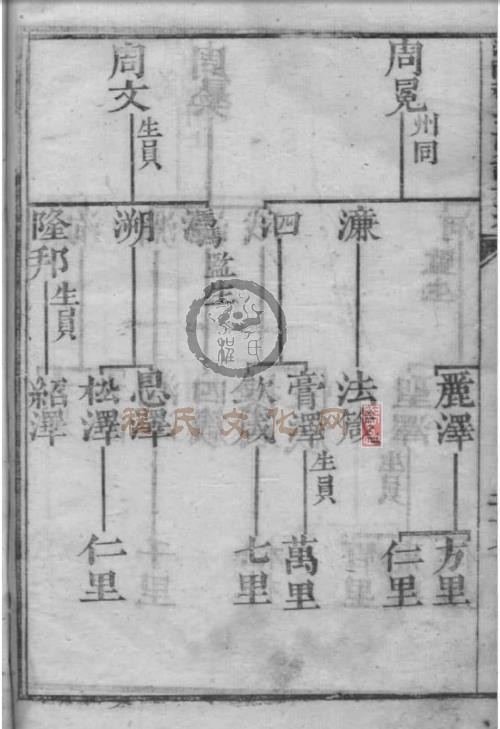 周冕
州同
周文
生員
濂
泗
溤
監生
溯
隆邦
生員
麗澤
法箴
膏澤
生員
欽哉
息澤
松澤
紹澤
方里
仁里
萬里
七里
仁里
程氏文化网